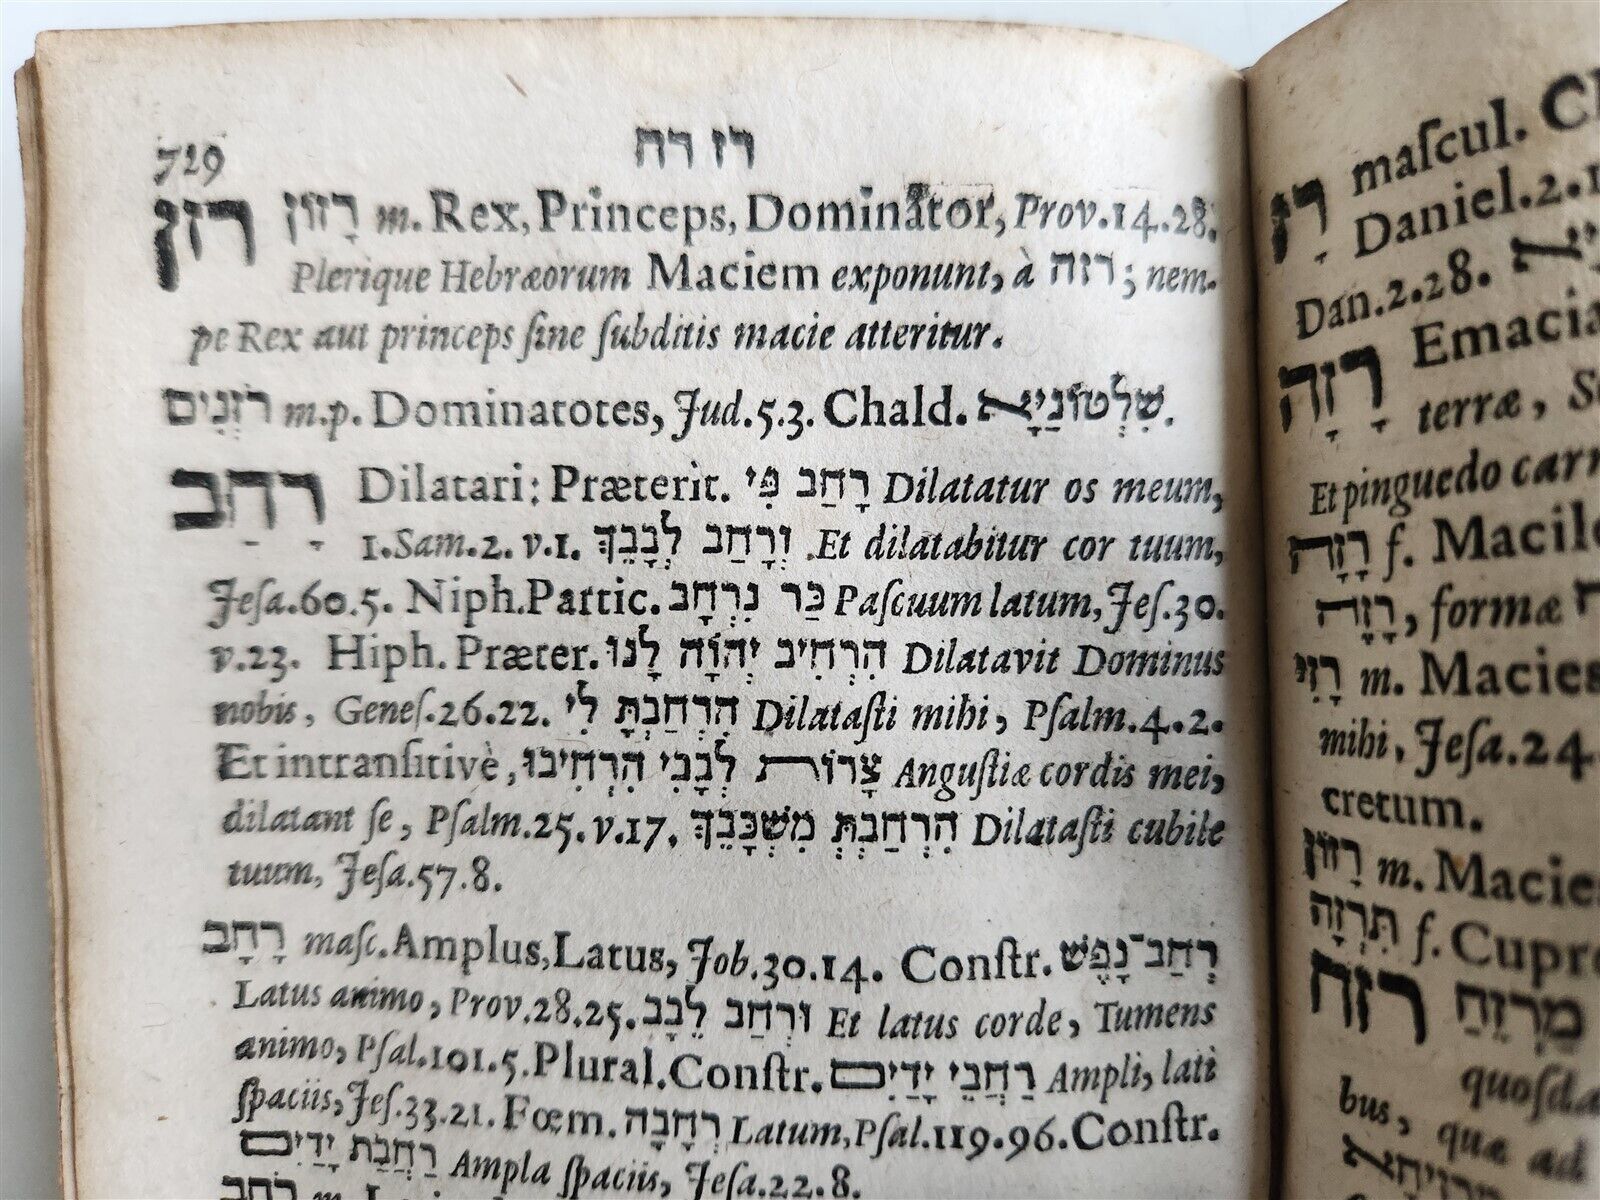 729
רז רח
רזן רָזוֹן m. Rex, Princeps, Dominator, Prov.14.28.
Plerique Hebræorum Maciem exponunt, à רזה; nem-
pe Rex aut princeps ſine ſubditis macie atteritur.
רֹזְנִים m.p. Dominatotes, Jud.5.3. Chald. שִׁלְטוֹנַיָּא.
רָחַב Dilatari: Præterit. רָחַב פִּי Dilatatur os meum,
1.Sam.2. v.1. וְרָחַב לְבָבֵךְ Et dilatabitur cor tuum,
Jeſa.60.5. Niph.Partic. כַּר נִרְחָב Paſcuum latum, Jeſ.30.
v.23. Hiph. Præter. הִרְחִיב יְהוָֹה לָנוּ Dilatavit Dominus
nobis, Geneſ.26.22. הִרְחַבְתָּ לִּי Dilataſti mihi, Pſalm.4.2.
Et intranſitivè, צָרוֹת לְבָבִי הִרְחִיבוּ Anguſtiæ cordis mei,
dilatant ſe, Pſalm.25.v.17. הִרְחַבְתְּ מִשְׁכָּבֵךְ Dilataſti cubile
tuum, Jeſa.57.8.
רָחָב maſc. Amplus, Latus, Job.30.14. Conſtr. רְחַב־נָפֶשׁ
Latus animo, Prov.28.25. וּרְחַב לֵבָב Et latus corde, Tumens
animo, Pſal.101.5. Plural.Conſtr. רַחֲבֵי יָדַיִם Ampli, lati
ſpaciis, Jeſ.33.21. Fœm. רְחָבָה Latum, Pſal.119.96. Conſtr.
רַחֲבַת יָדַיִם Ampla ſpaciis, Jeſa.22.8.
רָז maſcul.
Daniel.2.
Dan.2.28.
רָזָה
terræ,
Et pinguedo
רָזָה f.
רָזָה, formæ
רָזִי m. Macies
mihi, Jeſa.24
cretum.
רָזוֹן m. Macies
תִּרְזָה f.
רזח מִרְזַח
bus, quæ ad